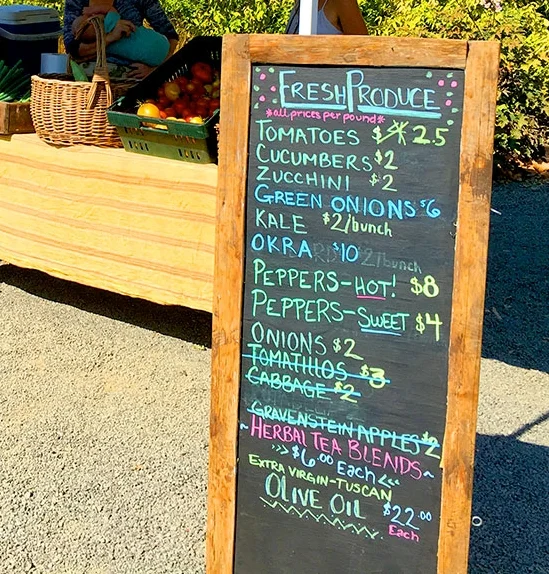 FRESH PRODUCE
*all prices per pound*
TOMATOES $ 2.5
CUCUMBERS $2
ZUCCHINI $2
GREEN ONIONS $6
KALE $2/bunch
OKRA $10 $2/bunch
PEPPERS-HOT! $8
PEPPERS-SWEET $4
ONIONS $2
TOMATILLOS $3
CABBAGE $2
GRAVENSTEIN APPLES $2
~HERBAL TEA BLENDS~
>>> $6.00 Each <<<
EXTRA VIRGIN-TUSCAN
OLIVE OIL $22.00
Each